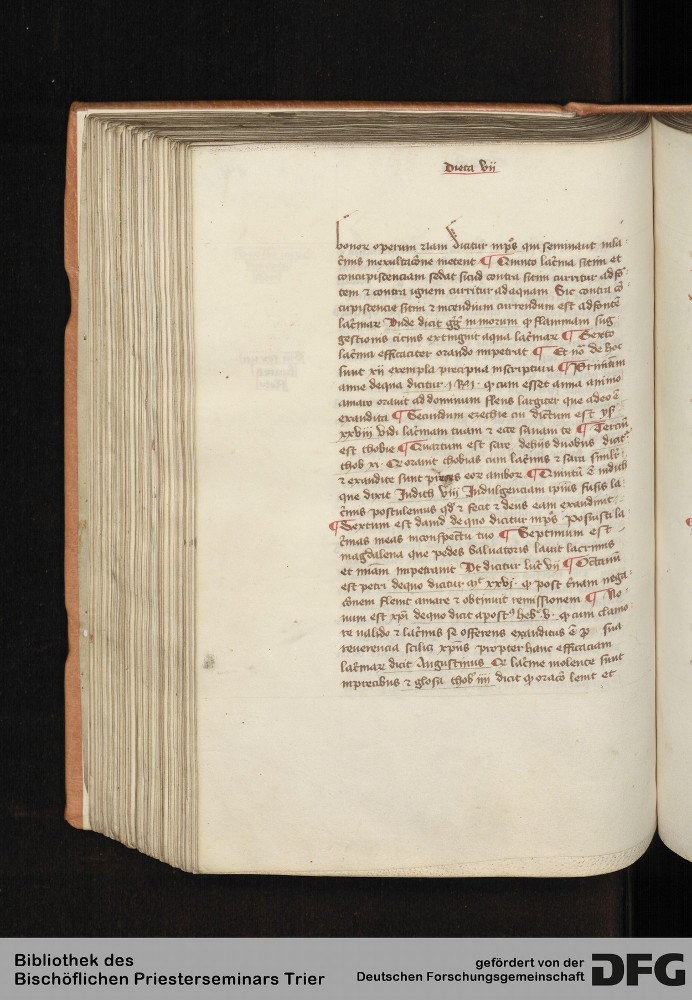 Dieta vij
bonor operum etiam dicitur in ps qui seminant in la
crimis in exultacione metent ¶ Quinto lacrima sitim et
concupiscenciam sedat sicud contra sitim curritur ad fō
tem ⁊ contra ignem curritur ad aquam Sic contra cō
cupiscencie sitim ⁊ incendium currendum est ad fontē
lacrimar Unde dicit gg in morum ꝙ flammam sug
gestionis cicius extingnit aqua lacrimar ¶ Sexto
lacrima efficaciter orando impetrat ¶ Et no de hoc
sunt xij exempla precipua in scriptura ¶ Primum
anne de qua dicitur ꝙ cum esset anna animo
amaro orauit ad dominum flens largiter que adeo ē
exaudita ¶ Secundum ezechie cui dictum est ys
xxviij vidi lacrimam tuam ⁊ ecce sanam te ¶ Terciū
est thobie ¶ Quartum est sare de hijs duobus dicitr
thob xi Orauit thobias cum lacrimis ⁊ sara similr
⁊ exaudite sunt preces eor ambor ¶ Quintū ē iudith
que dixit Judith viij Indulgenciam ipsius fusis la
crimis postulemus qd ⁊ fecit ⁊ deus eam exaudiuit
¶ Sextum est dauid de quo dicitur in ps Posuisti la
crimas meas in conspectu tuo ¶ Septimum est
magdalena que pedes saluatoris lauit lacrimis
et mīam impetrauit Ut dicitur luc vij ¶ Octauū
est petri de quo dicitur xxvi ꝙ post trinam nega
cōnem fleuit amare ⁊ obtinuit remissionem ¶ No
num est xpi de quo dicit apostꝰ heb v ꝙ cum clamo
re valido ⁊ lacrimis se offerens exauditus ē p sua
reuerencia scilic xpus propter hanc efficaciam
lacrimar dicit Augustinus Or lacrime
in precibus ⁊ glosa thob iiij dicit ꝙ oracō lenit et
Bibliothek des
Bischöflichen Priesterseminars Trier
gefördert von der
Deutschen Forschungsgemeinschaft
DFG